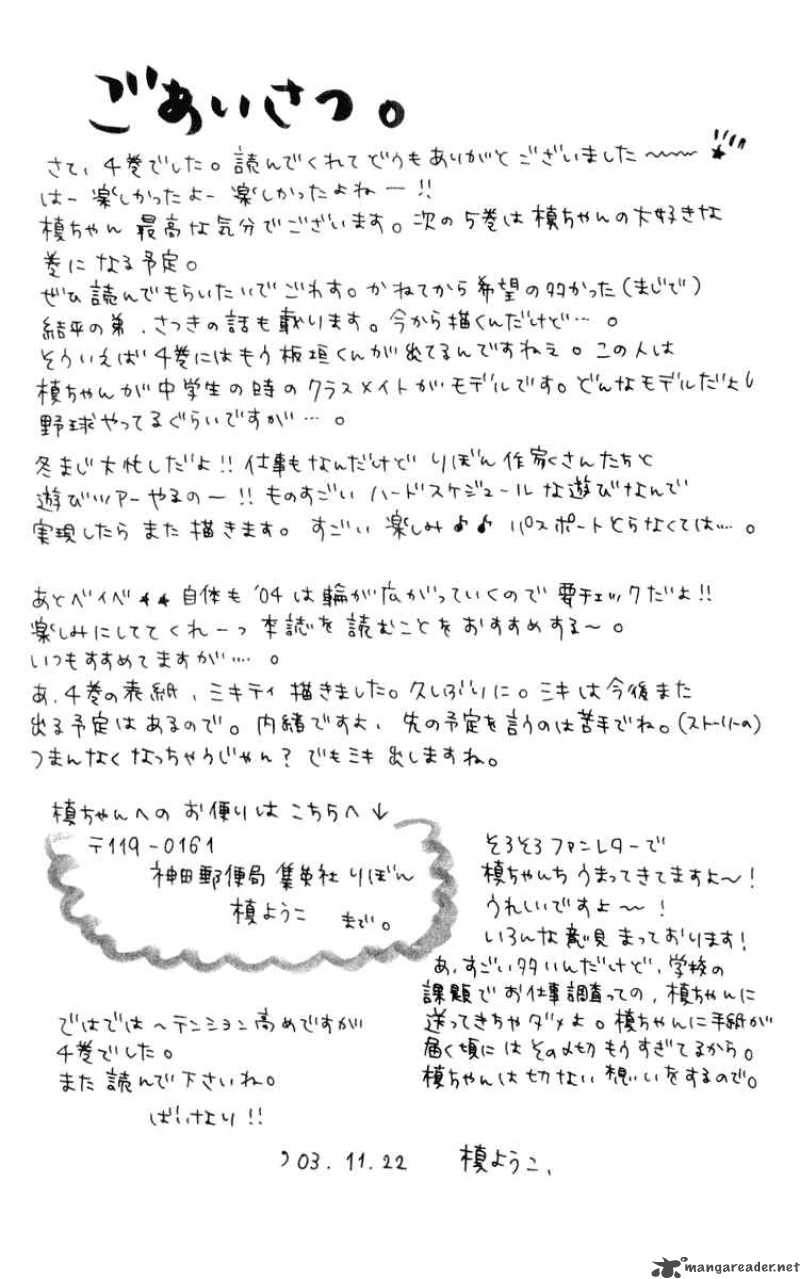 ごあいさつ。
さて、4巻でした。読んでくれてどうもありがとうございました〜〜
はー楽しかったよー楽しかったよねー!!
槙ちゃん 最高な気分でございます。次の5巻は槙ちゃんの大好きな
巻になる予定。
ぜひ読んでもらいたいでごわす。かねてから希望の多かった(まじで)
結平の弟、さつきの話も載ります。今から描くんだけど…。
そういえば4巻にはもう板垣くんが出てるんですねえ。この人は
槙ちゃんが中学生の時のクラスメイトがモデルです。どんなモデルだよ
野球やってるぐらいですが…。
冬まじ大忙しだよ!!仕事もなんだけど りぼん作家さんたちと
遊びツアーやるのー!!ものすごい ハードスケジュールな遊びなんで
実現したら また描きます。すごい 楽しみ♪♪ パスポートとらなくては…。
あとベイベ★★自体も '04は輪が広がっていくので 要チェックだよ!!
楽しみにしててくれーっ 本誌を読むことをおすすめする〜。
いつもすすめてますが…。
あ、4巻の表紙、ミキティ描きました。久しぶりに。ミキは今後また
出る予定はあるので。内緒ですよ、先の予定を言うのは苦手でね。(ストーリーの)
つまんなくなっちゃうじゃん?でもミキ出しますね。
槙ちゃんへの お便りは こちらへ↓
〒119-0161
神田郵便局 集英社 りぼん
槙ようこ まで。
そろそろファンレターで
槙ちゃんち うまってきてますよ〜!
うれしいですよ〜!
いろんな意見 まっております!
あ、すごい多いんだけど、学校の
課題でお仕事調査っての、槙ちゃんに
送ってきちゃダメよ。槙ちゃんに手紙が
届く頃には その〆切もうすぎてるから。
槙ちゃんは切ない想いをするので。
ではでは〜テンション高めですが
4巻でした。
また読んで下さいね。
ばいなり!!
'03.11.22 槙ようこ、
mangareader.net